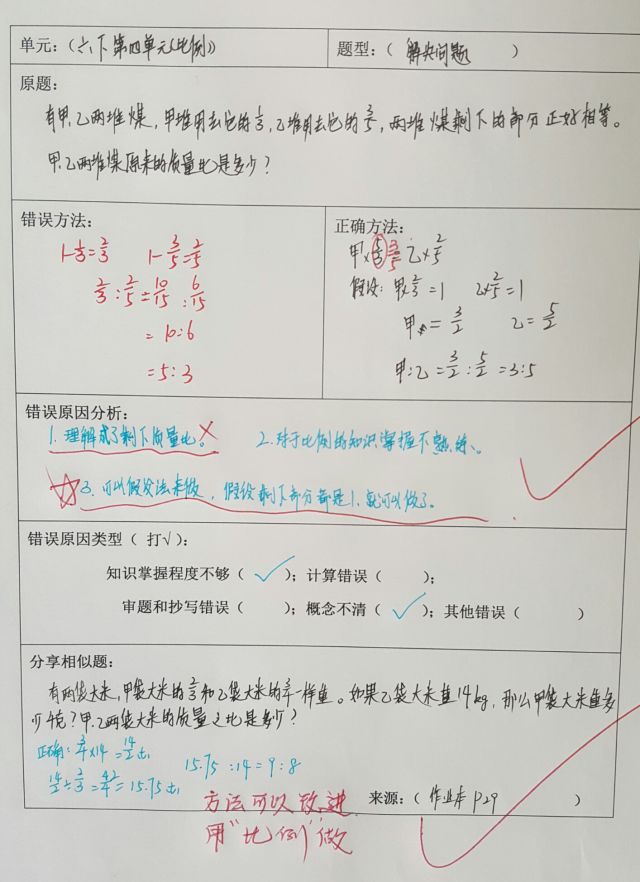 单元：（六下第四单元（比例））
题型：（ 解决问题 ）
原题：
有甲、乙两堆煤，甲堆用去它的1/3，乙堆用去它的3/5，两堆煤剩下的部分正好相等。
甲、乙两堆煤原来的质量比是多少？
错误方法：
1-1/3=2/3 1-3/5=2/5
2/3:2/5=10/15:6/15
=10:6
=5:3
正确方法：
=乙×2/5
假设：甲×2/3=1 乙×2/5=1
甲=3/2 乙=5/2
甲:乙=3/2:5/2=3:5
错误原因分析：
1.理解成了剩下质量比。 2.对于比例的知识掌握不熟练。
3.可以假设法来做，假设剩下部分都是1，就可以做了。
错误原因类型（ 打√）：
知识掌握程度不够（ √ ）；计算错误（ ）；
审题和抄写错误（ ）；概念不清（ √ ）；其他错误（ ）
分享相似题：
有两袋大米，甲袋大米的2/3和乙袋大米的3/4一样重。如果乙袋大米重14kg，那么甲袋大米重多
少千克？甲、乙两袋大米的质量之比是多少？
正确：3/4×14= 15.75:14=9:8
=15.75
来源：（ 作业本P29 ）
方法可以改进
用“比例”做